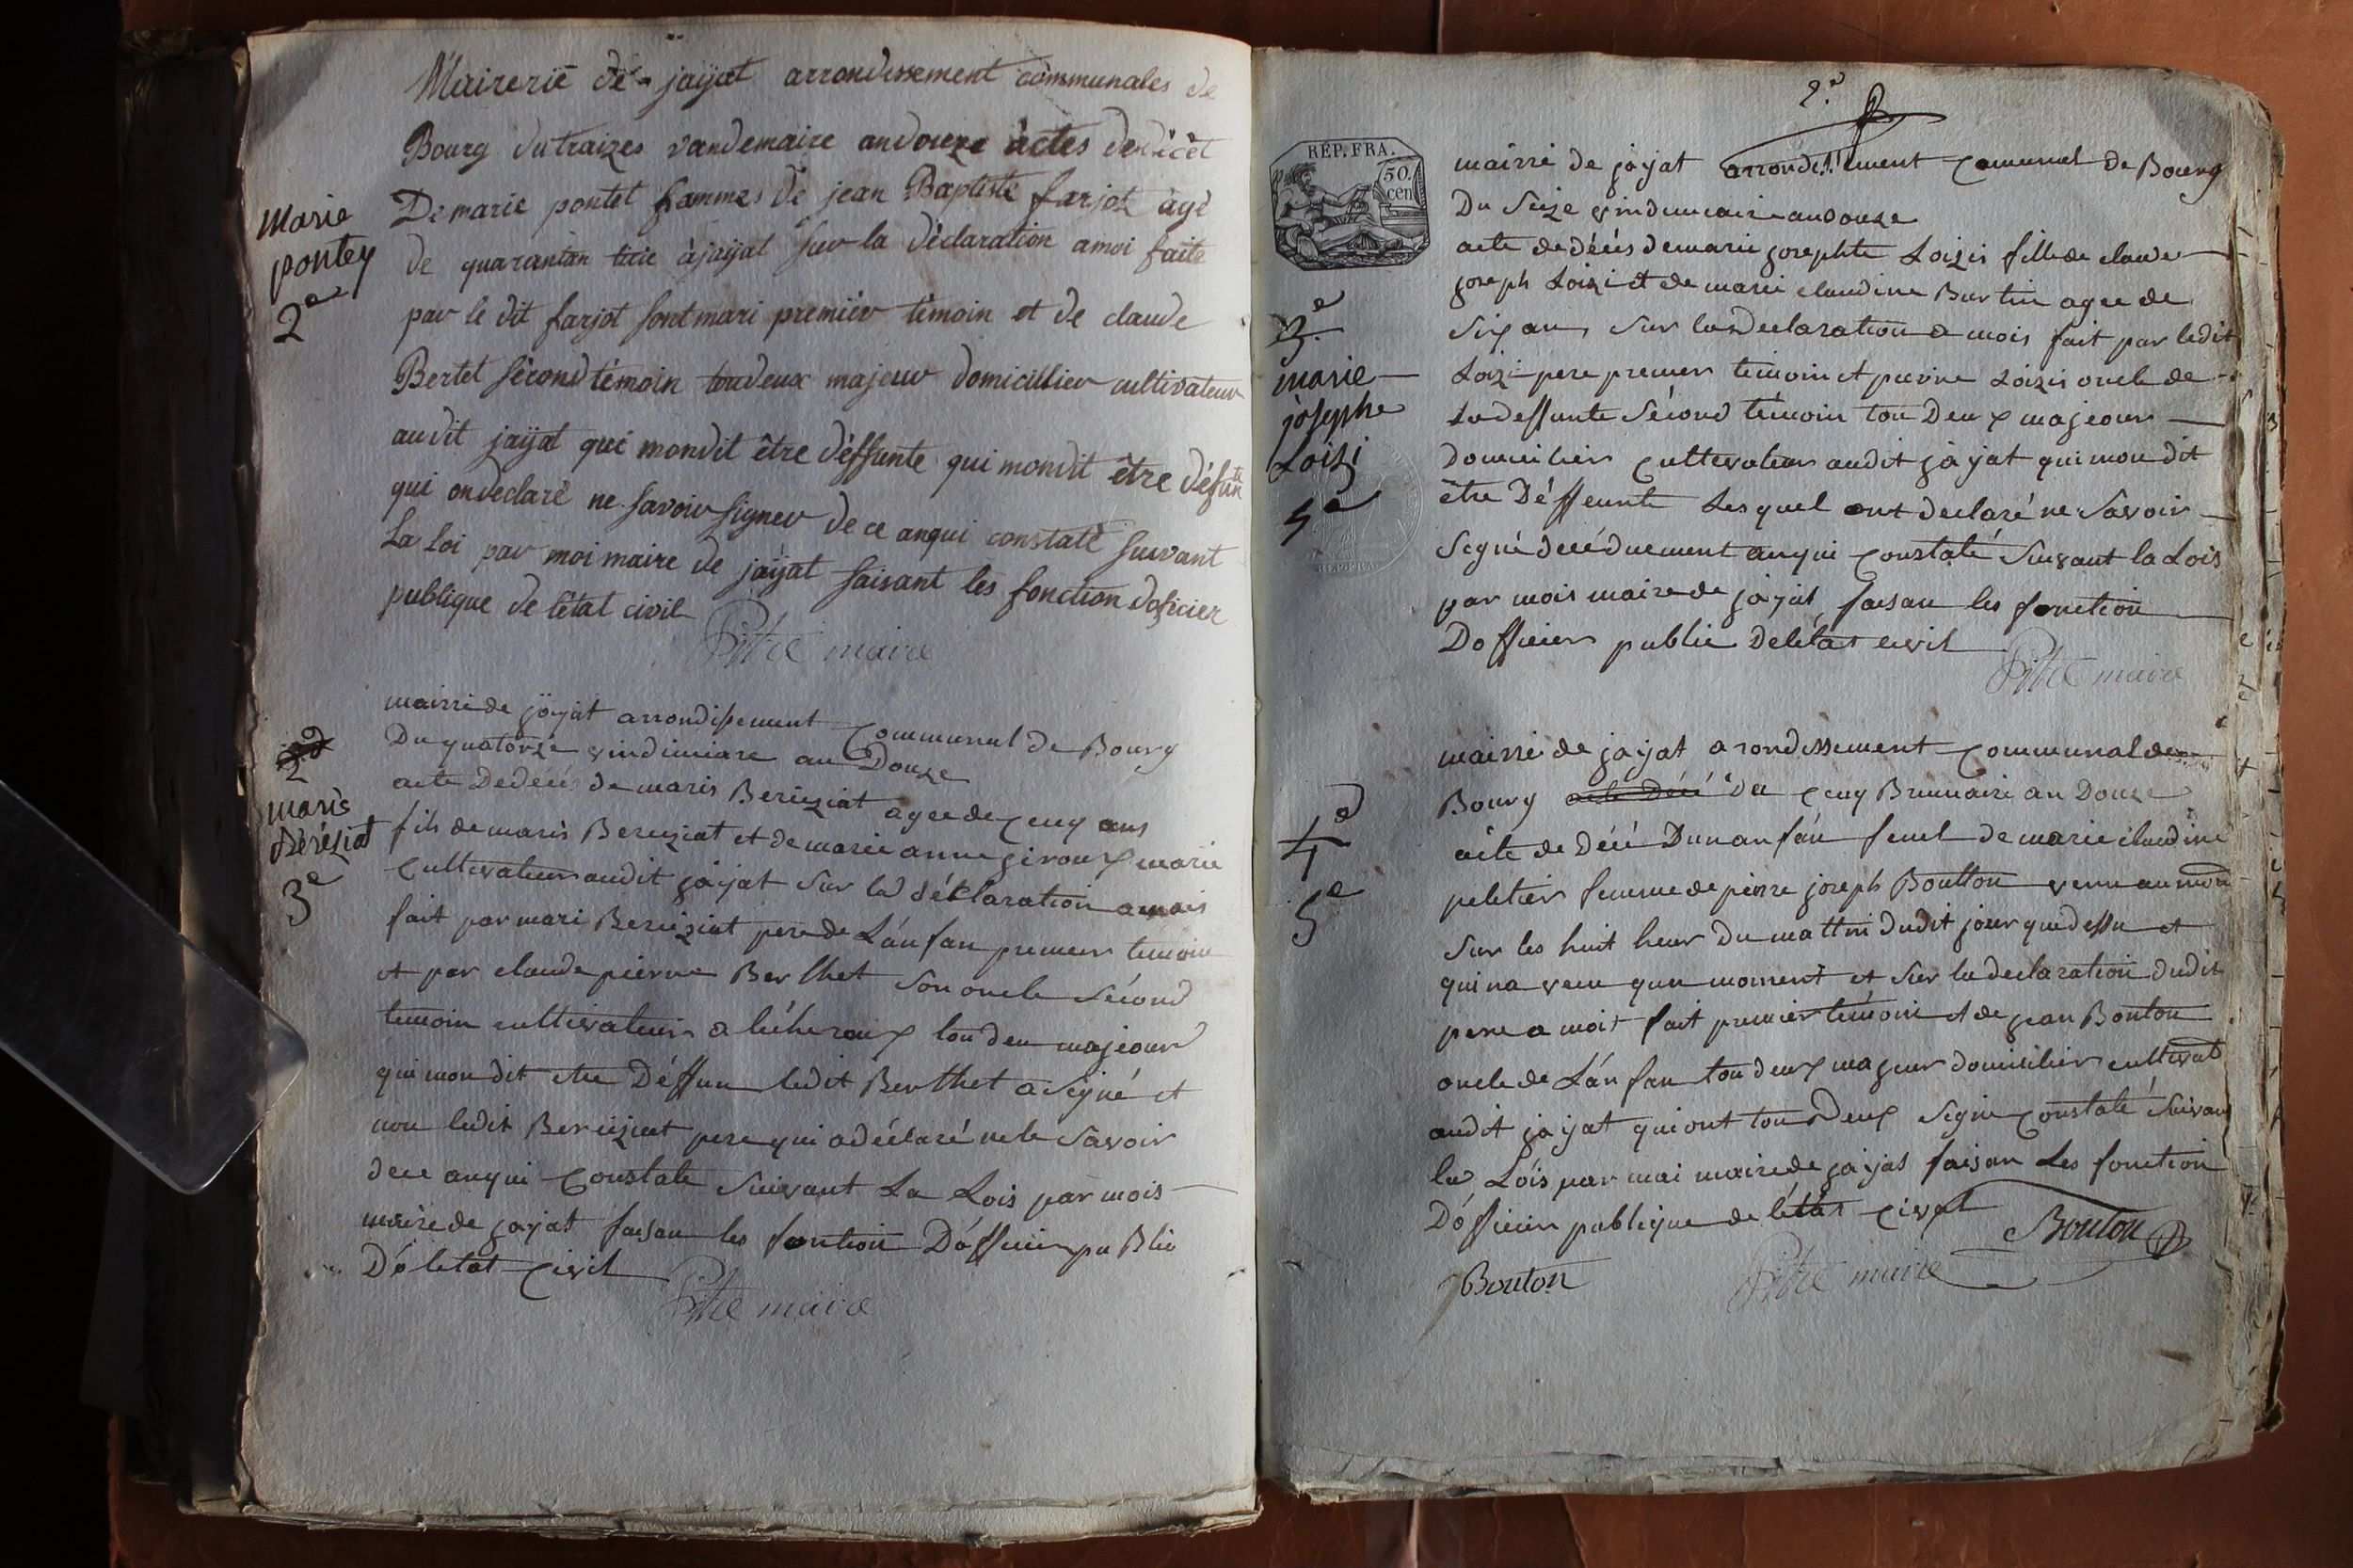 Mairerie de jaÿat arrondissement communales de
Bourg du traizes vandemaire an douze actes de dicét
De marie pontet fammes de jean Baptiste farjot agé
Marie
pontey
2e
de quarantan à jaijat sur la déclaration amoi faite
par le dit farjot sont mari premiér témoin et de claude
Bertet sécond témoin toudeux majeur domicillier cultivateur
au dit jaÿat qui mondit être déffunte qui mondit être défunte
qui on declaré ne savoir signer de ce anqui constaté suivant
La loi par moi maire de jaÿat faisant les fonction doficier
publique de l'état civil
Pitre maire
mairie de jaÿat arrondissement communal de Bourg
Du quatorze vindimiare an Douze
2e
maris
Béréziat
3e
acte Dedécés de maris Bereziat agee de cenq ans
fils de maris Bereziat et de marie anne giroux marie
cultivateur audit jaÿat sur la déclaration a mois
fait par mari Bereziat pere de L'anfan premier temoin
et par claude pierre Berthet son oncle sécond
temoin cultivateur a tou deu majeour
qui mon dit etre Déffun ledit Berthet a signé et
non ledit Bereziat pere qui a déclaré ne le savoir
dece anqui constate suivant La Lois par mois
maire de jaÿat faisan les fontion D'officier puBlic
Dé letat civil
Pitre maire
2e
REP. FRA.
50
cen
mairie de jaÿat arrondissement communal de Bourg
Du seize vindemiaire an douze
acte de décés de marie josephte Loizis fille de claude
joseph Loizi et de marie claudine Burtin agee de
six an, sur la declaration a mois fait par ledit
3e
marie
josephe
Loizi
4e
Loizi pere premier témoin et pierre Loizis oncle de
La deffunte sécond témoin tou Deux majeour
domicilier cultivateur audit jaÿat qui mon dit
être Déffeunte Lesquel ont declaré ne savoir
segné anqui constaté suivant la Lois
par mois maire de jaÿat faisan les fonction
Dofficier public de létat civil
Pitre maire
mairie de jaÿat arondissement communal de
Bourg acte Décé du cenq Brumaire an Douze
4e
5e
acte de Décé Dun anfan femel de marie claudine
peletier femme de pierre joseph Boutton venu au monde
sur les huit heur du mattin dudit jour que dessu et
qui na vecu qun moment et sur la declaration dudit
pere a moit fait premier témoin et de jean Bouton
oncle de L'anfan tou deux majeur domicilier cultivat
audit jaÿat qui ont tou Deux segne constaté suivant
la Lois par moi maire de jaÿat faisan Les fonction
D'officier publique de létat civil
Bouton
Bouton
Pitre maire